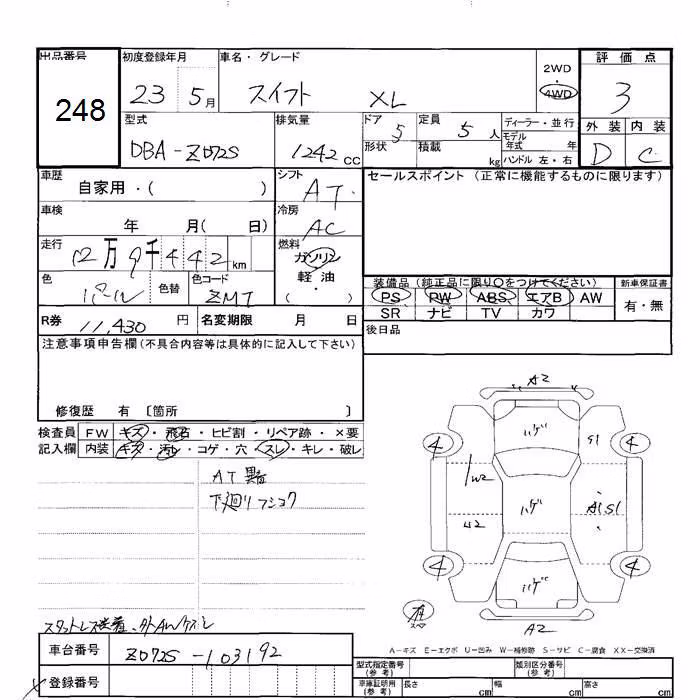 出品番号 初度登録年月 車名・グレード 2WD・4WD 評価点
248 23 5月 スイフト XL 3
型式 排気量 ドア 5 定員 5人 ディーラー・並行 外装 内装
DBA-ZD72S 1242cc 形状 積載 kg モデル年式 年 D C
ハンドル 左・右
車歴 自家用・( ) シフト AT セールスポイント (正常に機能するものに限ります)
車検 年 月( 日) 冷房 AC
走行 12万9千442km 燃料 ガソリン
軽油
( )
色 色替 色コード ZMT
装備品 (純正品に限り○をつけてください) 新車保証書
PS PW ABS エアB AW 有・無
SR ナビ TV カワ
R券 11,430円 名変期限 月 日
後日品
注意事項申告欄(不具合内容等は具体的に記入して下さい)
修復歴 有 〔箇所 〕
検査員 FW キズ・飛石・ヒビ割・リペア跡・×要
記入欄 内装 キズ・汚レ・コゲ・穴・スレ・キレ・破レ
下廻りフショク
A2
ハゲ
S1
4 4
W2
ハゲ A1S1
U2
4 4
ハゲ
A2
スペア
A-キズ E-エクボ U-凹み W-補修跡 S-サビ C-腐食 XX-交換済
車台番号 ZD72S-103192
登録番号
型式指定番号(参考) 類別区分番号(参考)
車庫証明用(参考) 長さ cm 幅 cm 高さ cm